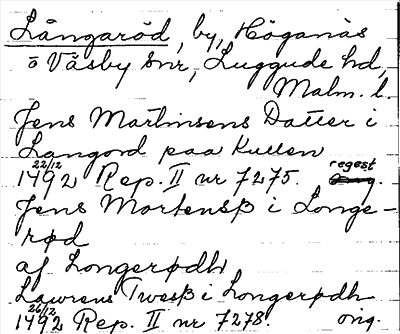 Långaröd, by, Höganäs
o Väsby snr, Luggude hd,
Malm. l.
Jens Martinsens Datter i
Langord paa Kullen
22/12 regest
1492 Rep. II nr 7275.
Jens Mortensβ i Longe-
rød
af Longerødh
Lawrens Twesβ i Longerødh
26/12
1492 Rep. II nr 7278. orig.